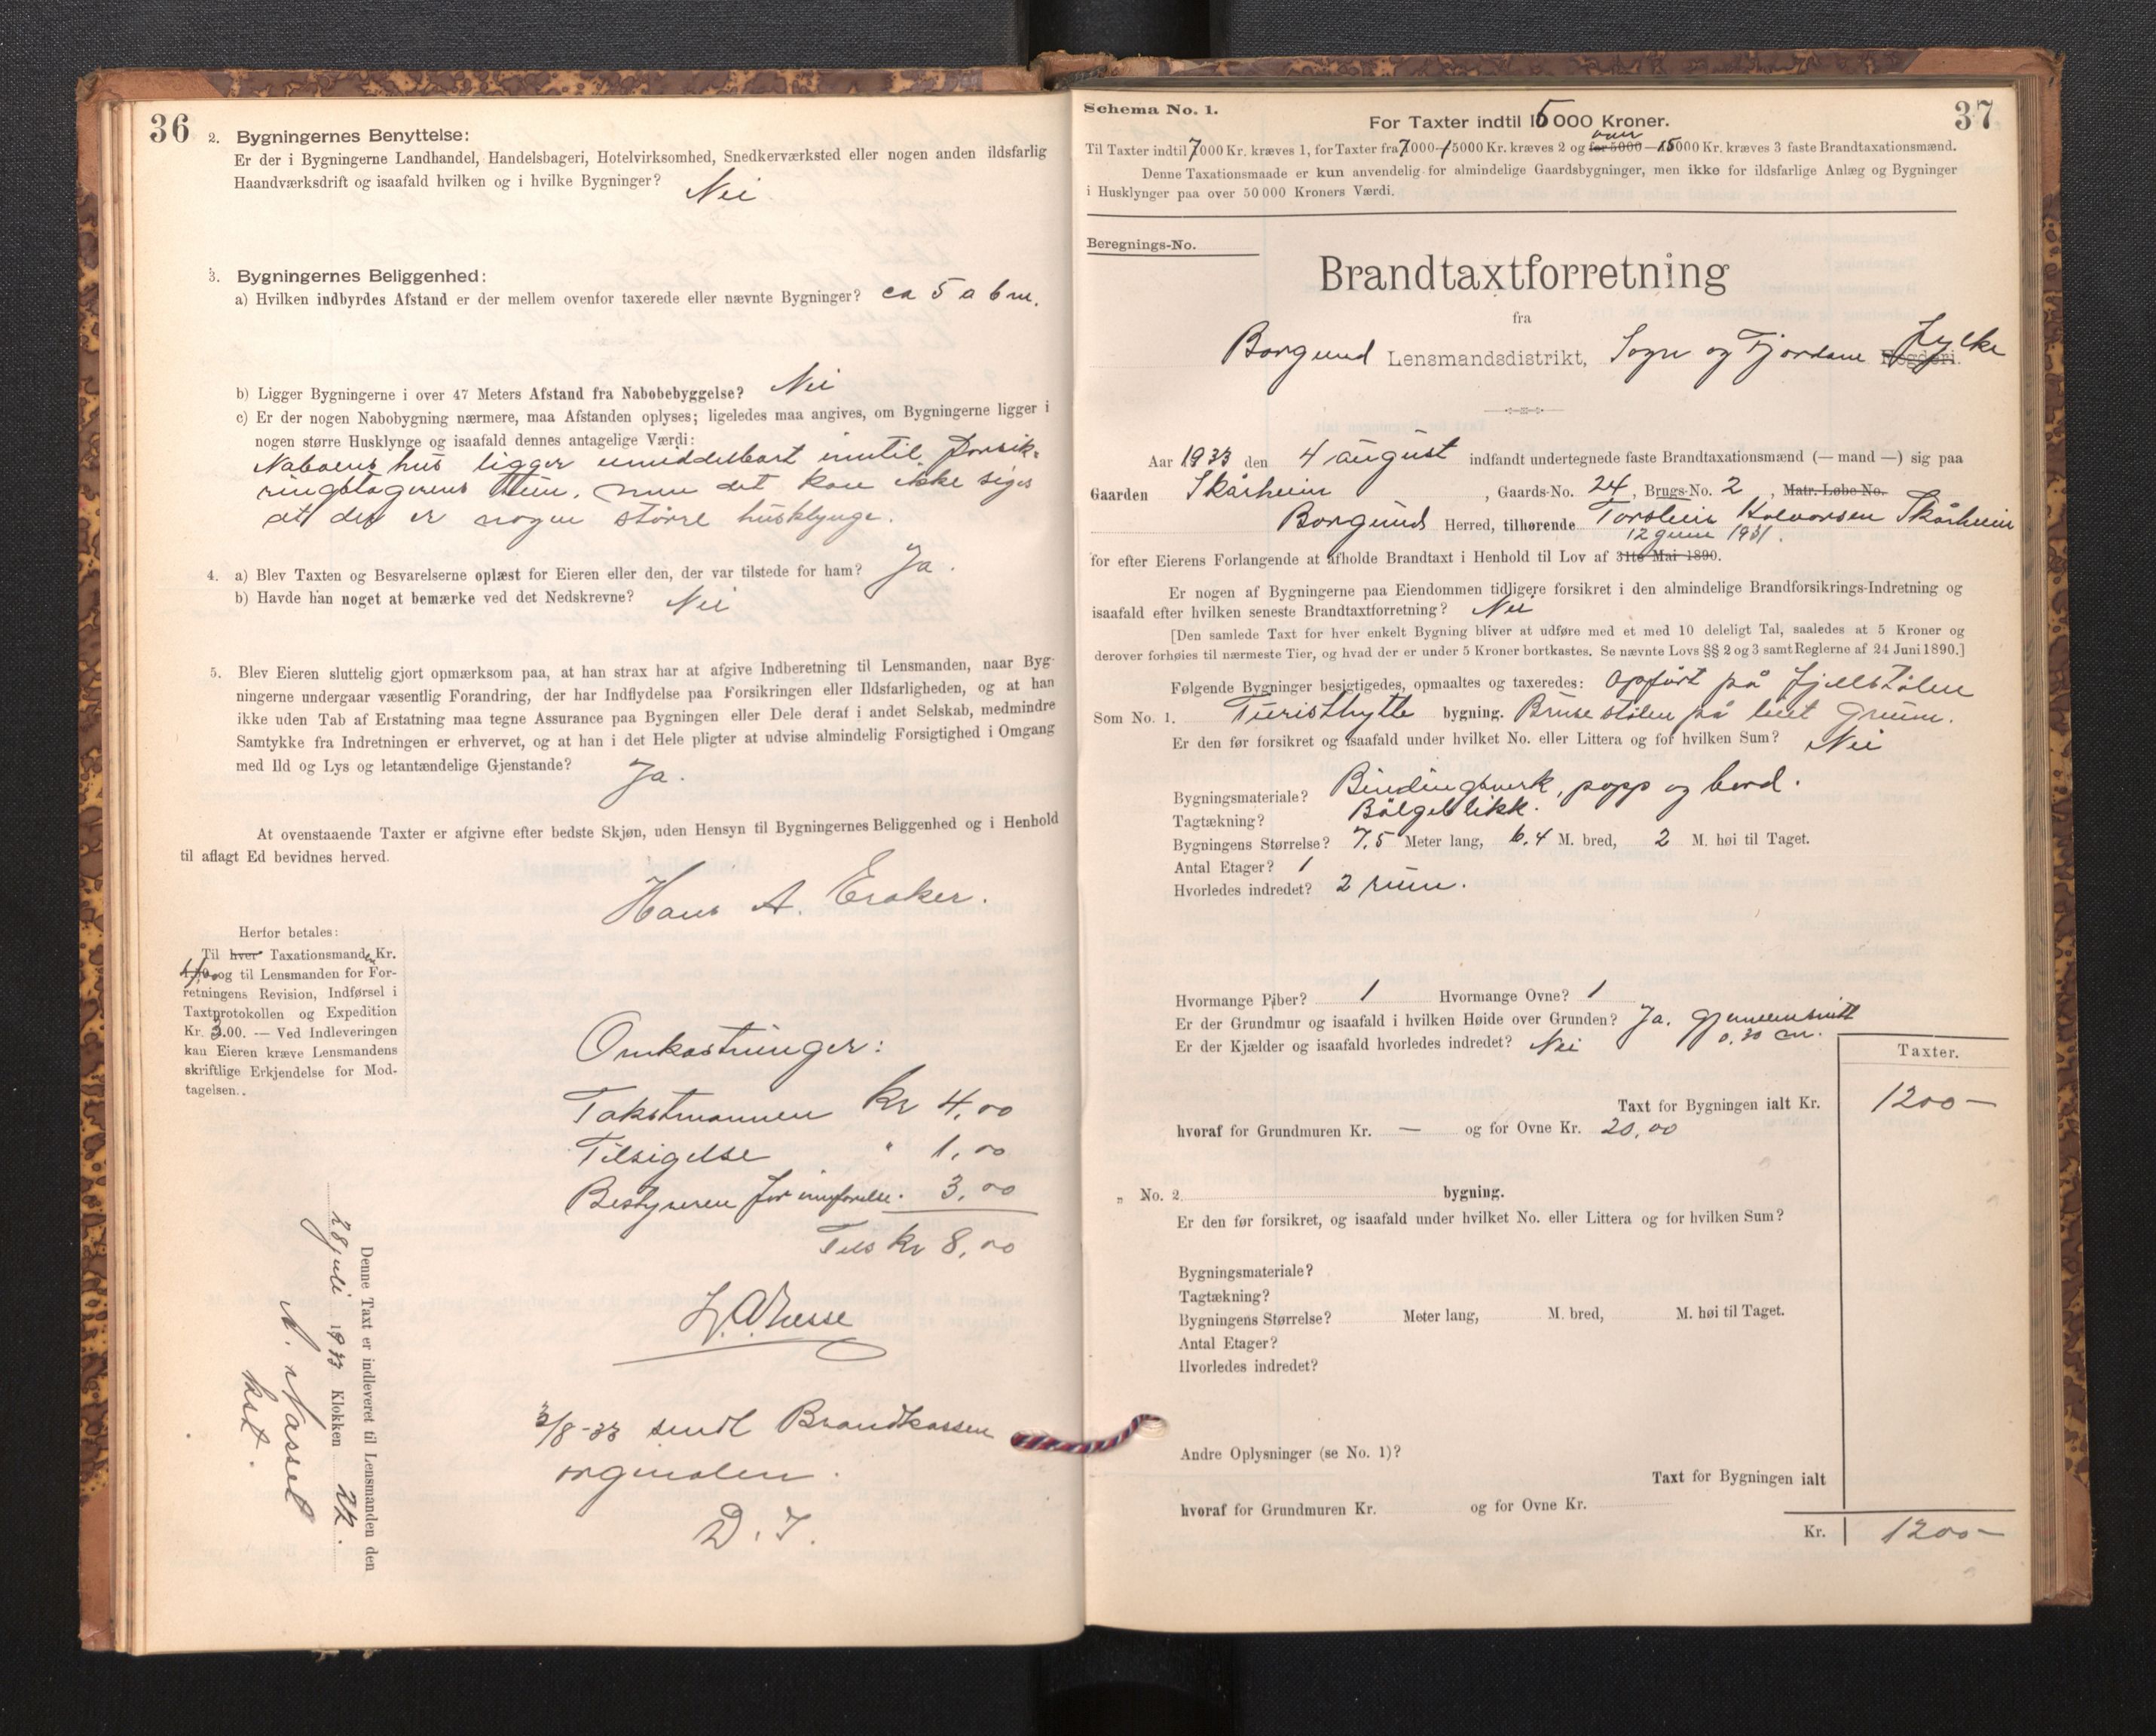 36
2. Bygningernes Benyttelse:
Er der i Bygningerne Landhandel, Handelsbageri, Hotelvirksomhed, Snedkerværksted eller nogen anden ildsfarlig
Haandværksdrift og isaafald hvilken og i hvilke Bygninger? Nei
3. Bygningernes Beliggenhed:
a) Hvilken indbyrdes Afstand er der mellem ovenfor taxerede eller nævnte Bygninger? ca 5 a 6 m.
b) Ligger Bygningerne i over 47 Meters Afstand fra Nabobebyggelse? Nei
c) Er der nogen Nabobygning nærmere, maa Afstanden oplyses; ligeledes maa angives, om Bygningerne ligger i
nogen større Husklynge og isaafald dennes antagelige Værdi:
Naboens hus ligger umiddelbart inntil forsik-
ringstagerens tun, men det kan ikke siges
at der er nogen större husklynge.
4. a) Blev Taxten og Besvarelserne oplæst for Eieren eller den, der var tilstede for ham? Ja.
b) Havde han noget at bemærke ved det Nedskrevne? Nei
5. Blev Eieren sluttelig gjort opmærksom paa, at han strax har at afgive Indberetning til Lensmanden, naar Byg-
ningerne undergaar væsentlig Forandring, der har Indflydelse paa Forsikringen eller Ildsfarligheden, og at han
ikke uden Tab af Erstatning maa tegne Assurance paa Bygningen eller Dele deraf i andet Selskab, medmindre
Samtykke fra Indretningen er erhvervet, og at han i det Hele pligter at udvise almindelig Forsigtighed i Omgang
med Ild og Lys og letantændelige Gjenstande? Ja.
At ovenstaaende Taxter er afgivne efter bedste Skjøn, uden Hensyn til Bygningernes Beliggenhed og i Henhold
til aflagt Ed bevidnes herved.
Hans A. Eraker.
Herfor betales:
Til hver Taxationsmanden Kr.
og til Lensmanden for For-
retningens Revision, Indførsel i
Taxtprotokollen og Expedition
Kr. 3.00. — Ved Indleveringen
kan Eieren kræve Lensmandens
skriftlige Erkjendelse for Mod-
tagelsen..
Omkostninger:
Takstmannen kr 4,00
Tilsigelse " 1,00
Bestyreren for innførelse. 3,00
Tils kr 8,00
Denne Taxt er indleveret til Lensmanden den
28 juli 1933 Klokken 24.
kst.
3/8-33 sendt Brandkassen
orginalen.
D. T.
37
Schema No. 1.
For Taxter indtil 15 000 Kroner.
Til Taxter indtil 7000 Kr. kræves 1, for Taxter fra 7000—15000 Kr. kræves 2 og for 5000 over —15000 Kr. kræves 3 faste Brandtaxationsmænd.
Denne Taxationsmaade er kun anvendelig for almindelige Gaardsbygninger, men ikke for ildsfarlige Anlæg og Bygninger
i Husklynger paa over 50 000 Kroners Værdi.
Beregnings-No.
Brandtaxtforretning
fra
Borgund Lensmandsdistrikt, Sogn og Fjordane Fogderi. Fylke
Aar 1933 den 4 august indfandt undertegnede faste Brandtaxationsmænd (— mand —) sig paa
Gaarden Skårheim, Gaards-No. 24, Brugs-No. 2, Matr.-Løbe-No.
Borgunds Herred, tilhørende Torstein Halvorsen Skårheim
12 juni 1931.
for efter Eierens Forlangende at afholde Brandtaxt i Henhold til Lov af 31te Mai 1890.
Er nogen af Bygningerne paa Eiendommen tidligere forsikret i den almindelige Brandforsikrings-Indretning og
isaafald efter hvilken seneste Brandtaxtforretning? Nei
[Den samlede Taxt for hver enkelt Bygning bliver at udføre med et med 10 deleligt Tal, saaledes at 5 Kroner og
derover forhøies til nærmeste Tier, og hvad der er under 5 Kroner bortkastes. Se nævnte Lovs §§ 2 og 3 samt Reglerne af 24 Juni 1890.]
Følgende Bygninger besigtigedes, opmaaltes og taxeredes: Opført på Fjellstölen
Som No. 1. Turisthytte bygning. Brusestölen på leiet grunn.
Er den før forsikret og isaafald under hvilket No. eller Littera og for hvilken Sum? Nei
Bygningsmateriale? Bindingsverk, papp og bord.
Tagtækning? Bölgeblikk.
Bygningens Størrelse? 7,5 Meter lang, 6,4 M. bred, 2 M. høi til Taget.
Antal Etager? 1
Hvorledes indredet? 2 rum.
Hvormange Piber? 1 Hvormange Ovne? 1
Er der Grundmur og isaafald i hvilken Høide over Grunden? Ja. gjennemsnitt
0,30 cm.
Er der Kjælder og isaafald hvorledes indredet? Nei
Taxter.
Taxt for Bygningen ialt Kr. 1200—
hvoraf for Grundmuren Kr. — og for Ovne Kr. 20,00
„ No. 2 bygning.
Er den før forsikret, og isaafald under hvilket No. eller Littera og for hvilken Sum?
Bygningsmateriale?
Tagtækning?
Bygningens Størrelse? Meter lang, M. bred, M. høi til Taget.
Antal Etager?
Hvorledes indredet?
Andre Oplysninger (se No. 1)?
Taxt for Bygningen ialt
hvoraf for Grundmuren Kr. og for Ovne Kr.
Kr. 1200—